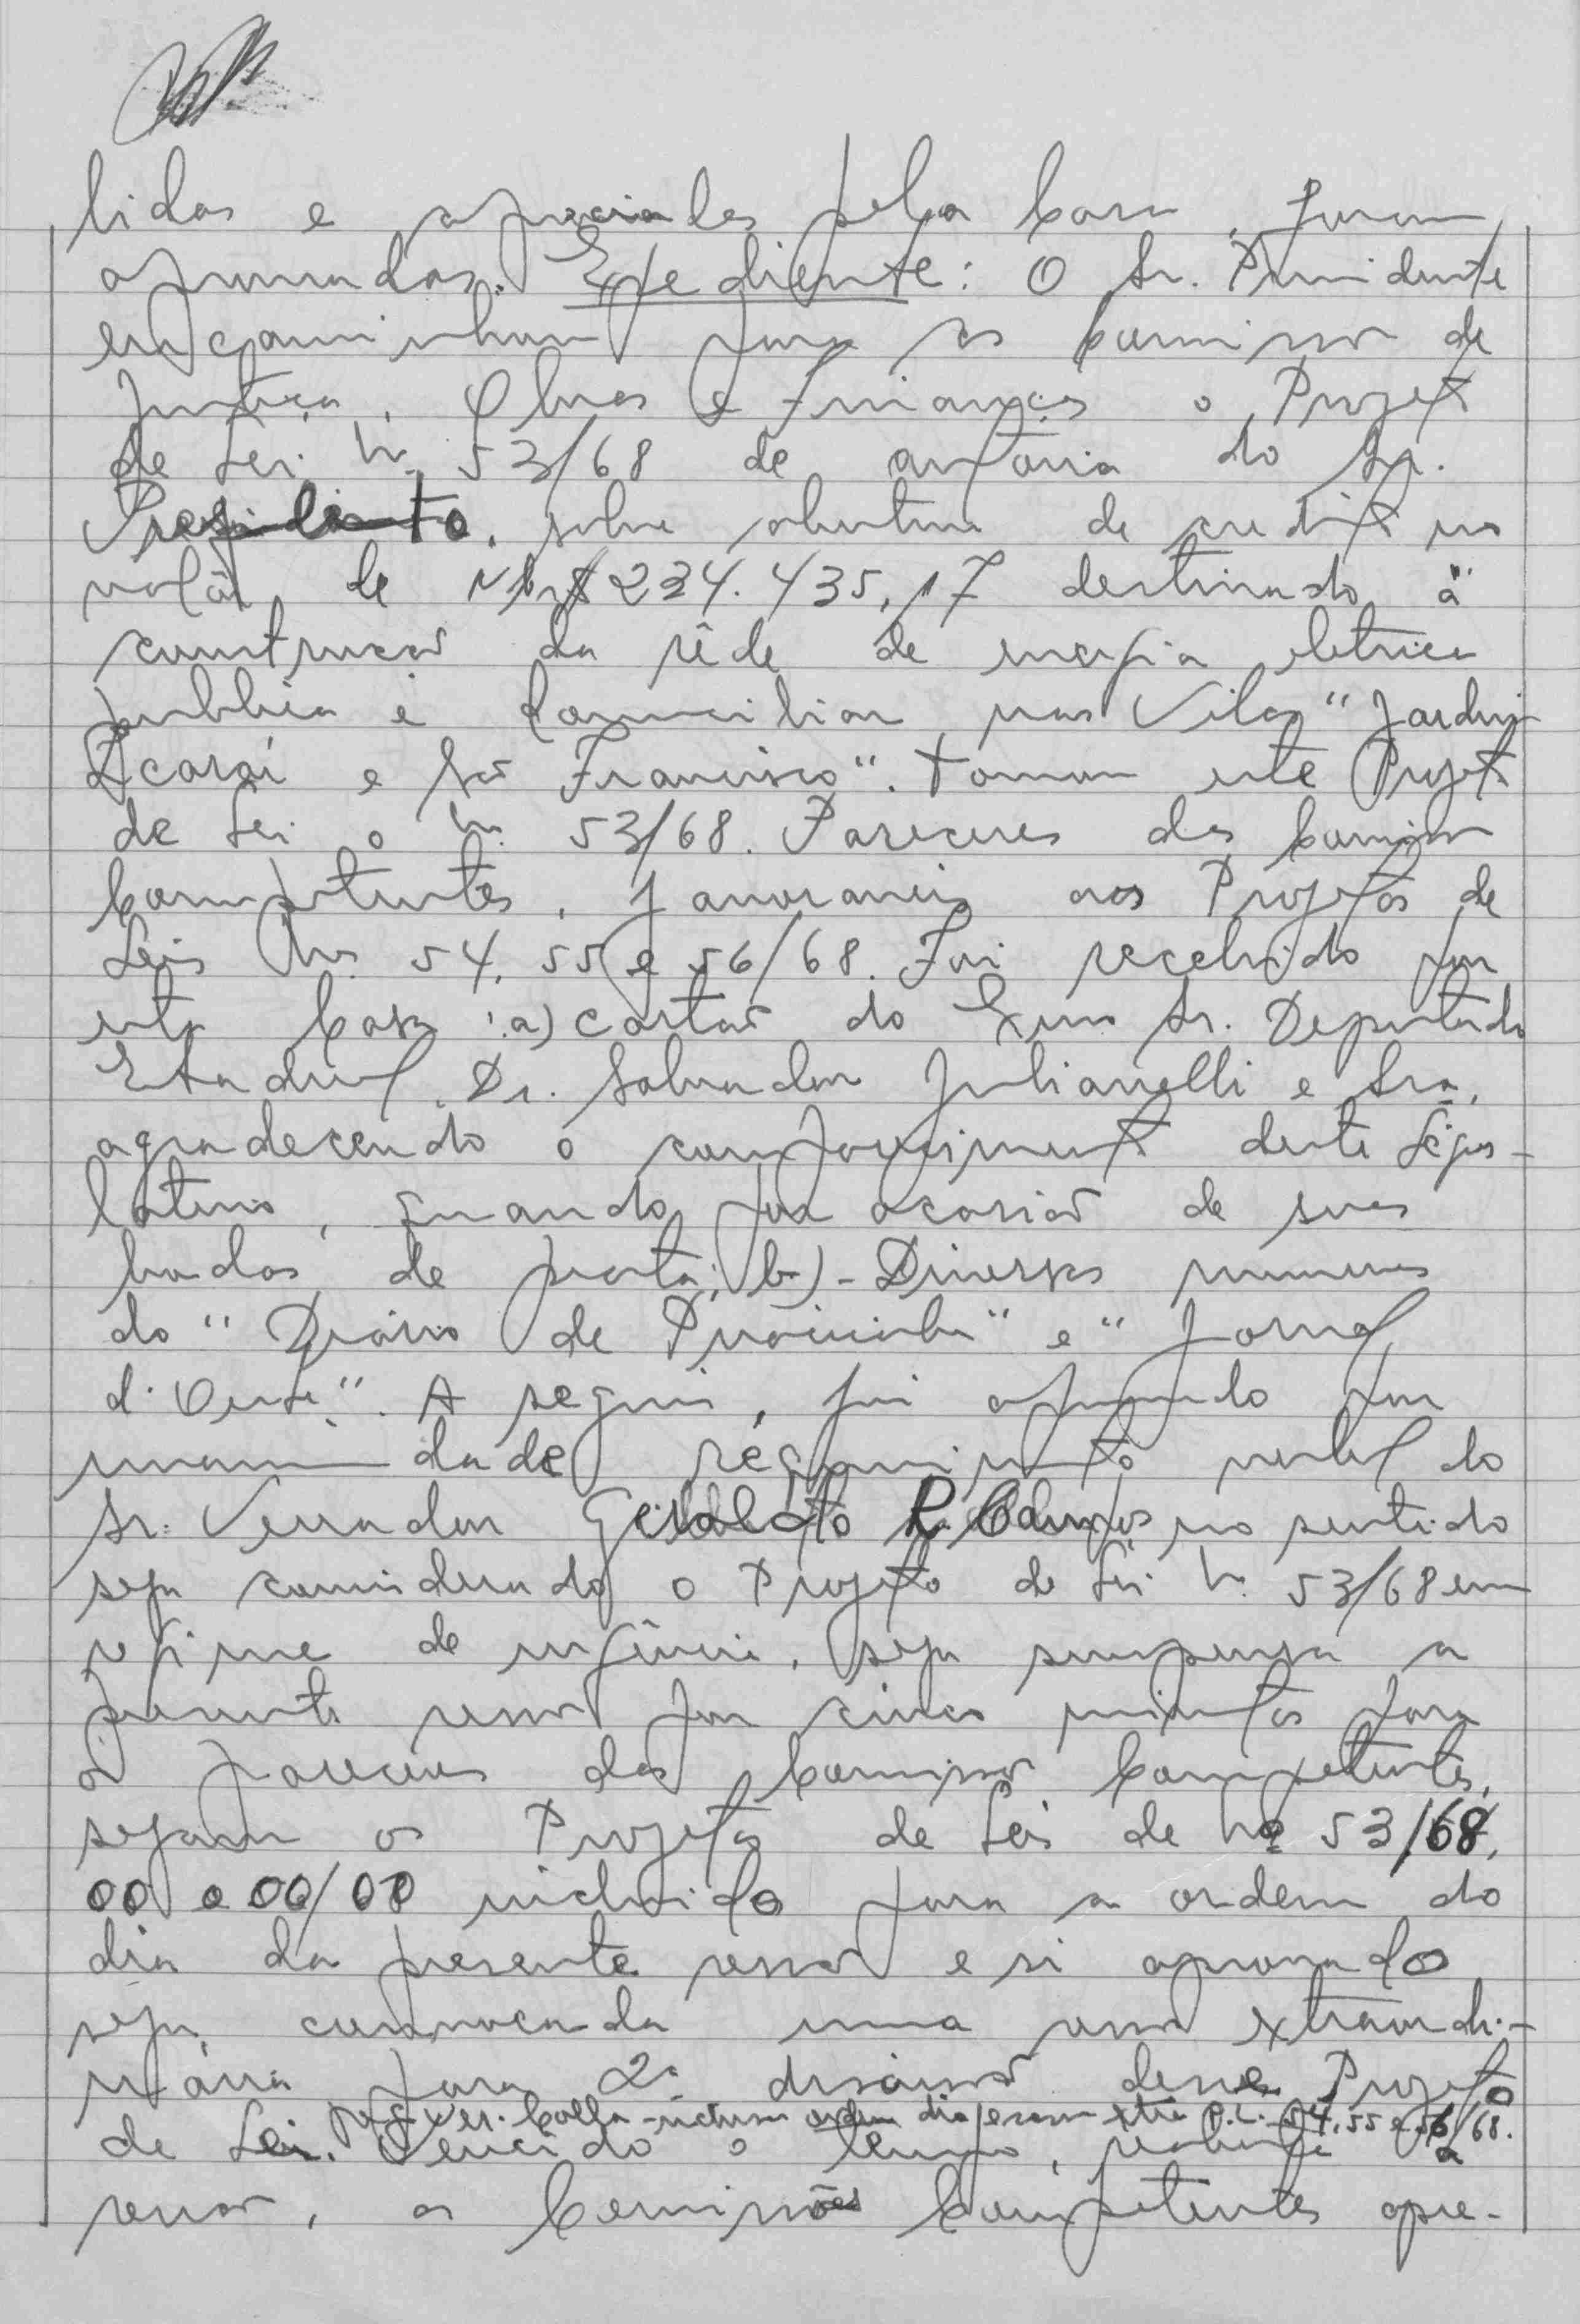 lidas e apreciadas pela Casa, foram
aprovadas. Expediente: O Sr. Presidente
encaminhou para as Comissão de
Justiça, Obras e Finanças o Projeto
de Lei n. 53/68 de autoria do Sr.
sobre abertura de credito no
valôr de NCr$ 234.435,17 destinado à
construção da rêde de energia eletrica
publica e domiciliar nas Vilas "Jardim
Icaraí e São Francisco". Tomou este Projeto
de Lei o n. 53/68. Pareceres das Comissão
Competentes, favoraveis aos Projetos de
Leis Nrs. 54, 55 e 56/68. Foi recebido por
esta Casa: a) cartão do Exmo Sr. Deputado
Estadual, Dr. Salvador Julianelli e Sra,
agradecendo o comparecimento deste Légis-
lativo, quando por ocasião de suas
bodas de prata; b)- Diversos numeros
do "Diário de Piracicaba" e "Jornal
d'Oeste". A seguir, foi aprovado por
unanimidade requerimento verbal do
Sr. Vereador Geraldo R. Campos no sentido
seja considerado o Projeto de Lei n. 53/68 em
regime de urgência, seja suspensa a
presente sessão por cinco minutos para
os pareceres das Comissão Competentes,
sejam os Projetos de Leis de nº 53/68,
00 e 00/00 incluido para a ordem do
dia da presente sessão e si aprovado
seja convocada uma sessão extraordi-
nária para 2ª discussão desse Projeto
ver. incluir ordem dia extra P.L. 54, 55 e 56/68.
de Lei. Vencido o tempo, reaberta a
sessão, as Comissões Competentes apre-